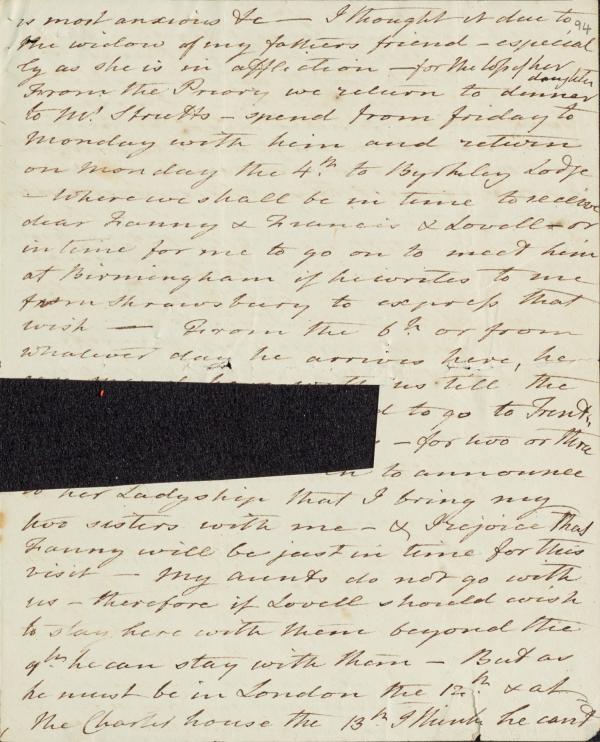 94
is most anxious &c — I thought it due to
the widow of my fathers friend – especial
ly as she is in affliction – for the loss of her
daughter
From the Priory we return to dinner
to Mr. Strutts – spend from friday to
Monday with him and return
on Monday the 4th. to Byrkeley Lodge
– Where we shall be in time to receive
dear Fanny & Francis & Lovell – or
in time for me to go on to meet him
at Birmingham if he writes to me
from Shrawsbury to express that
wish — From the 6th or from
whatever day he arrives here, he
us till the
d to go to Trent
– for two or three
to announce
to her Ladyship that I bring my
two sisters with me – & I rejoice that
Fanny will be just in time for this
visit – My aunts do not go with
us – therefore if Lovell should wish
to stay here with them beyond the
9th he can stay with them – But as
he must be in London the 12th & at
the Charter house the 13th I think he cant